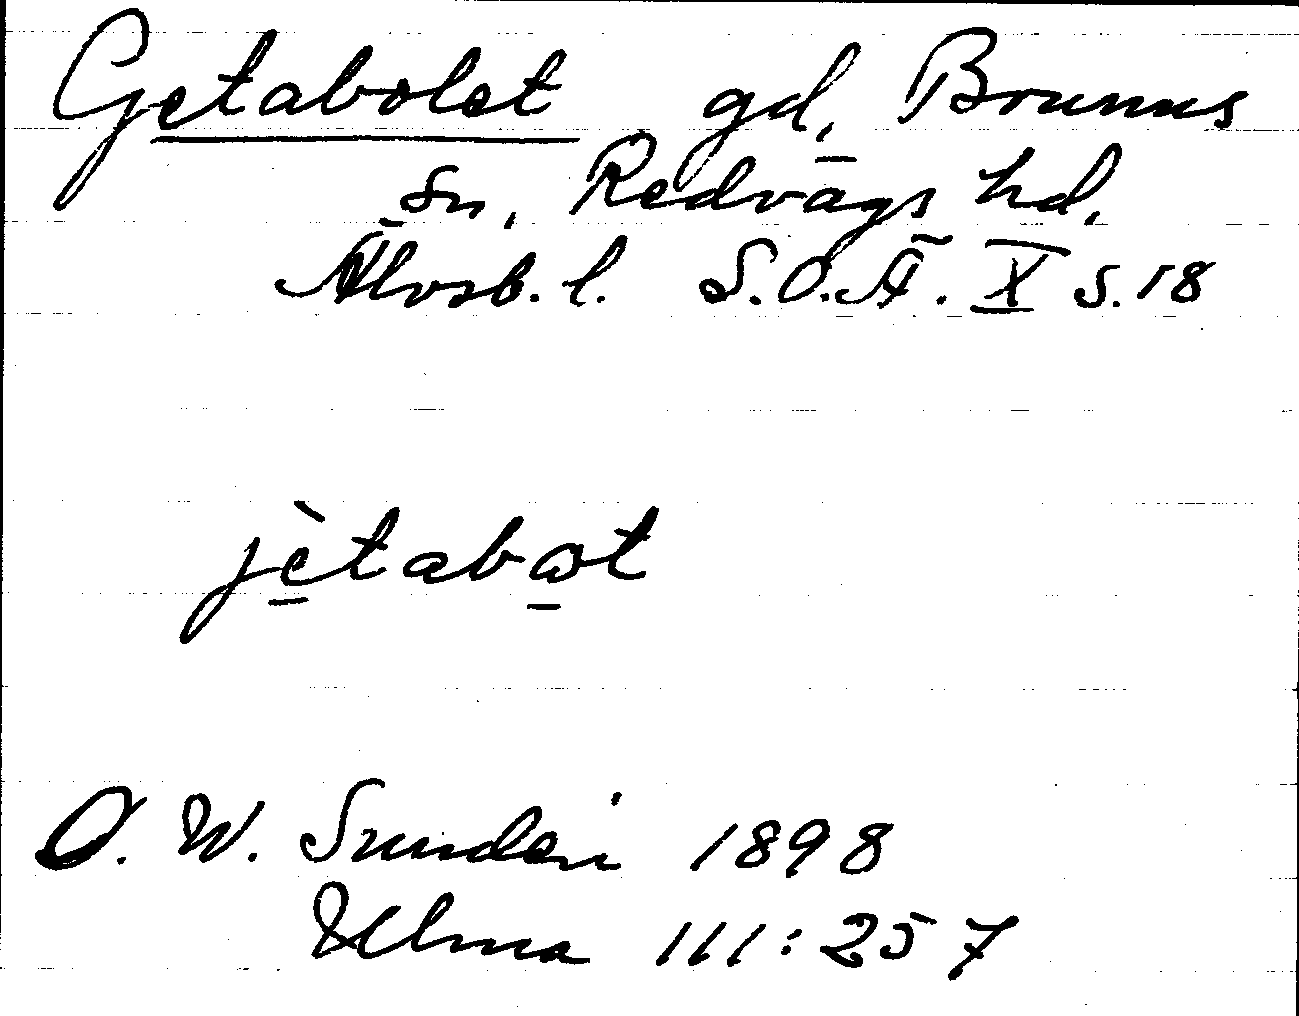 Getabolet gd, Brunns
sn, Redvägs hd,
Älvsb. l. S.O.Ä. X s. 18
jètabωt
O. W. Sundén 1898
Ulma 111:257